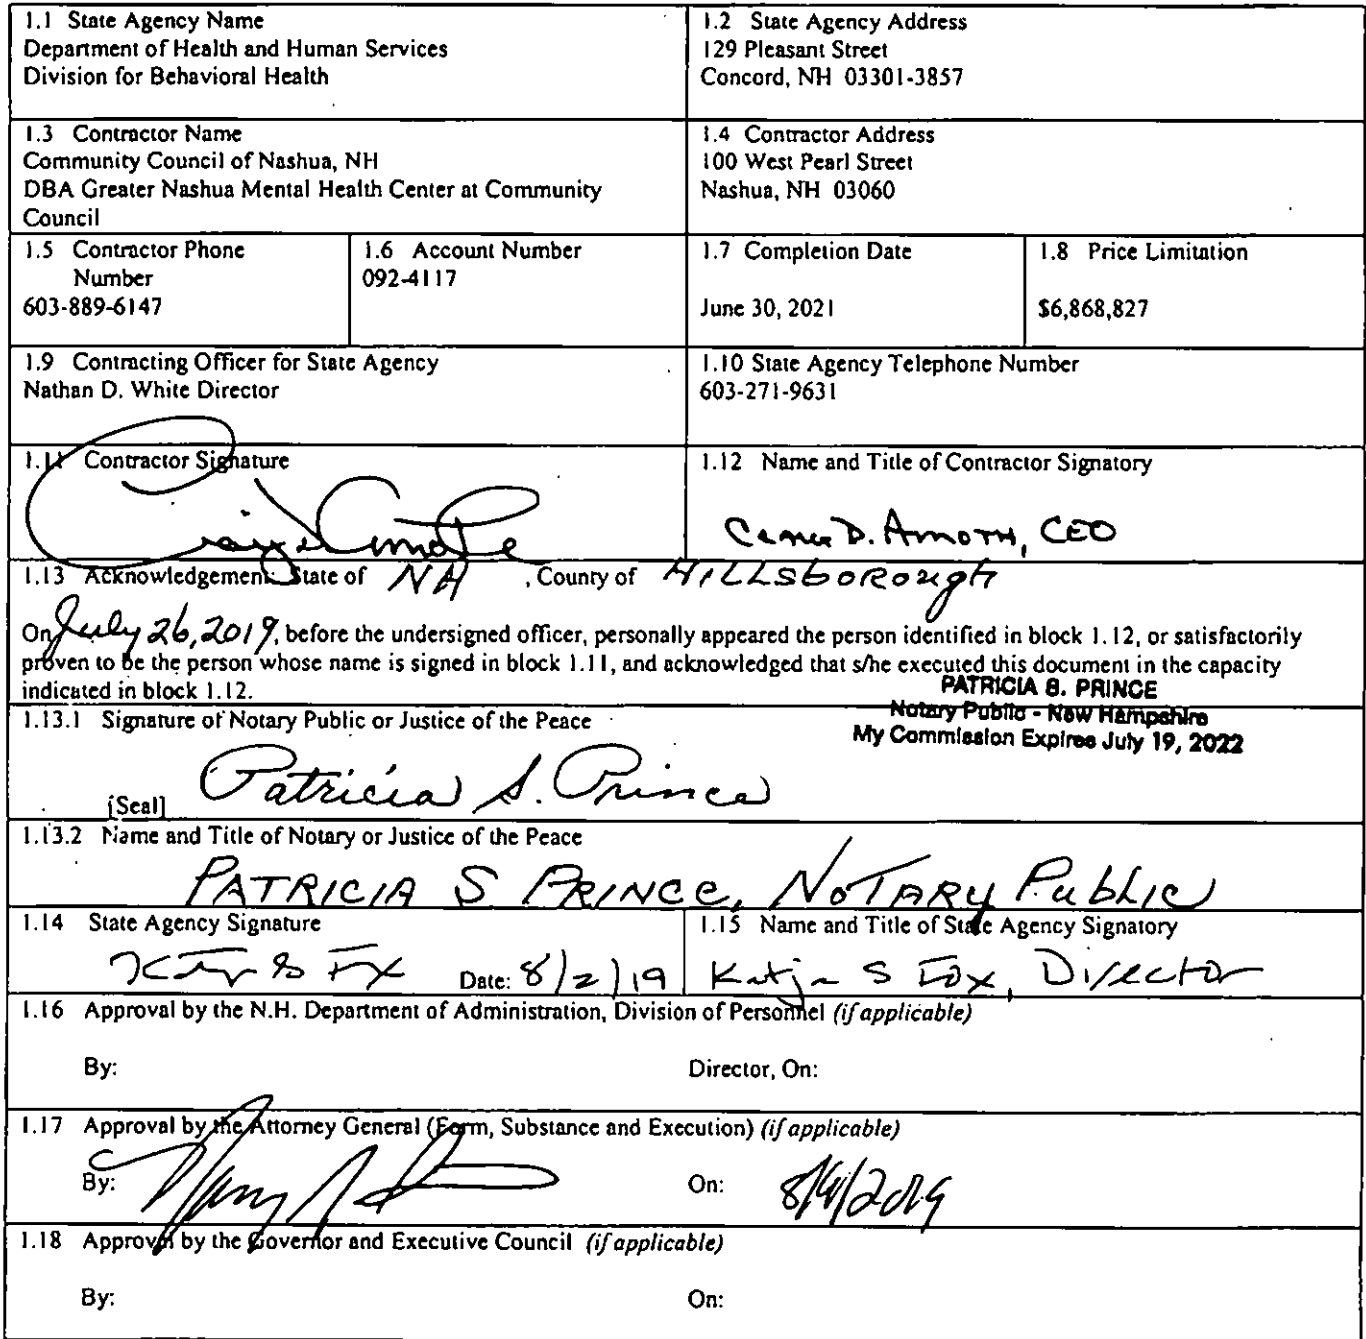 1.1 State Agency Name
Department of Health and Human Services
Division for Behavioral Health
1.2 State Agency Address
129 Pleasant Street
Concord, NH 03301-3857
1.3 Contractor Name
Community Council of Nashua, NH
DBA Greater Nashua Mental Health Center at Community
Council
1.4 Contractor Address
100 West Pearl Street
Nashua, NH 03060
1.5 Contractor Phone
Number
603-889-6147
1.6 Account Number
092-4117
1.7 Completion Date
June 30, 2021
1.8 Price Limitation
$6,868,827
1.9 Contracting Officer for State Agency
Nathan D. White Director
1.10 State Agency Telephone Number
603-271-9631
1.11 Contractor Signature
1.12 Name and Title of Contractor Signatory
D. Amoth, CEO
1.13 Acknowledgement: State of NH , County of HILLSboRough
On July 26, 2019, before the undersigned officer, personally appeared the person identified in block 1.12, or satisfactorily
proven to be the person whose name is signed in block 1.11, and acknowledged that s/he executed this document in the capacity
indicated in block 1.12.
PATRICIA S. PRINCE
Notary Public - New Hampshire
My Commission Expires July 19, 2022
1.13.1 Signature of Notary Public or Justice of the Peace
Patricia S. Prince
[Seal]
1.13.2 Name and Title of Notary or Justice of the Peace
PATRICIA S PRINCE, NOTARY Public
1.14 State Agency Signature
Date: 8/2/19
1.15 Name and Title of State Agency Signatory
Katja S Fox, Director
1.16 Approval by the N.H. Department of Administration, Division of Personnel (if applicable)
By:
Director, On:
1.17 Approval by the Attorney General (Form, Substance and Execution) (if applicable)
By:
On:
1.18 Approval by the Governor and Executive Council (if applicable)
By:
On: